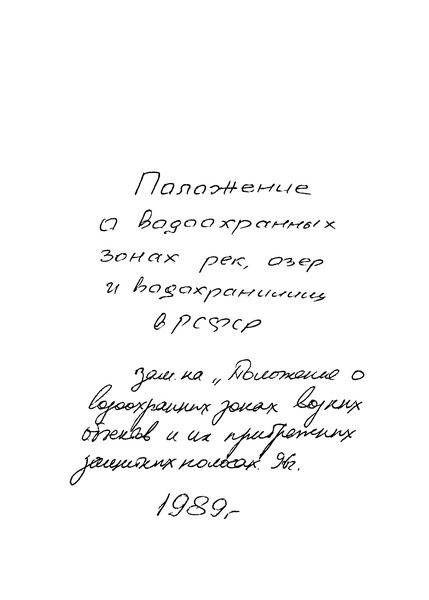 Положение
о водоохранных
зонах рек, озер
и водохранилищ
в РСФСР
зам. на „Положение о
водоохранных зонах водных
объектов и их прибрежных
защитных полосах. 96г.
1989г